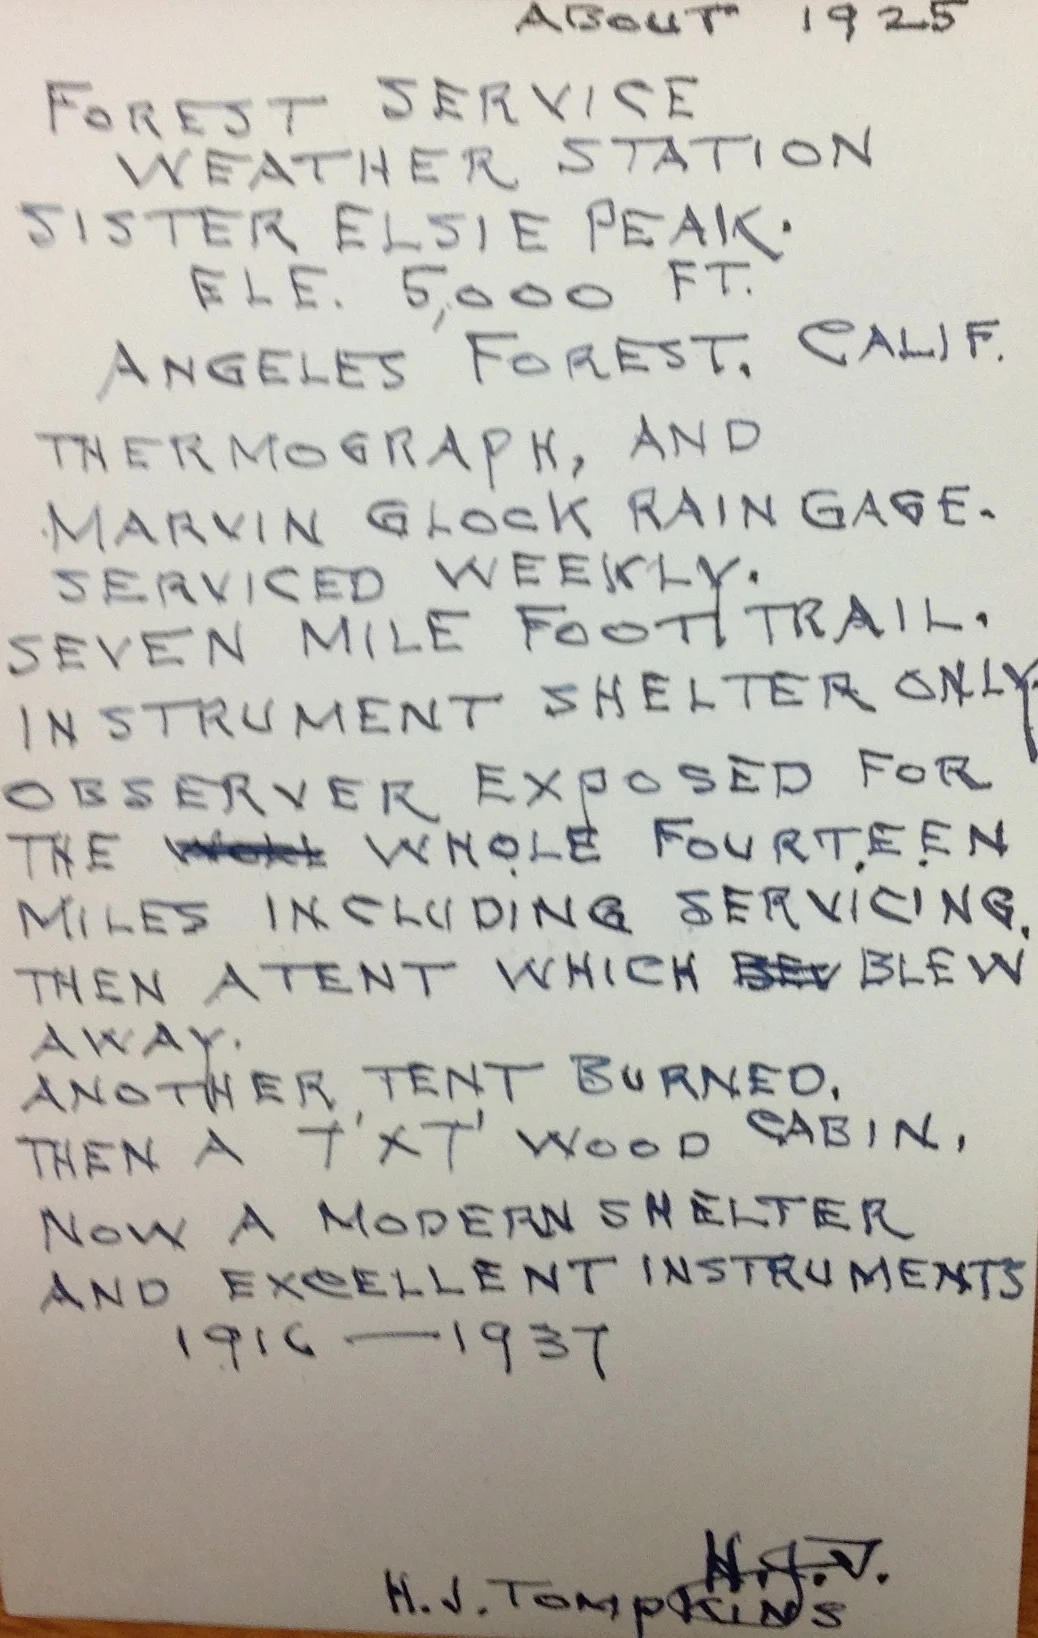 ABOUT 1925
FOREST SERVICE
WEATHER STATION
SISTER ELSIE PEAK.
ELE. 5,000 FT.
ANGELES FOREST. CALIF.
THERMOGRAPH, AND
MARVIN GLOCK RAIN GAGE.
SERVICED WEEKLY.
SEVEN MILE FOOT TRAIL.
INSTRUMENT SHELTER ONLY
OBSERVER EXPOSED FOR
THE WHOLE FOURTEEN
MILES INCLUDING SERVICING.
THEN A TENT WHICH BLEW
AWAY.
ANOTHER TENT BURNED.
THEN A 7'X7' WOOD CABIN.
NOW A MODERN SHELTER
AND EXCELLENT INSTRUMENTS
1916 — 1937
H.J.T.
H.J. TOMPKINS